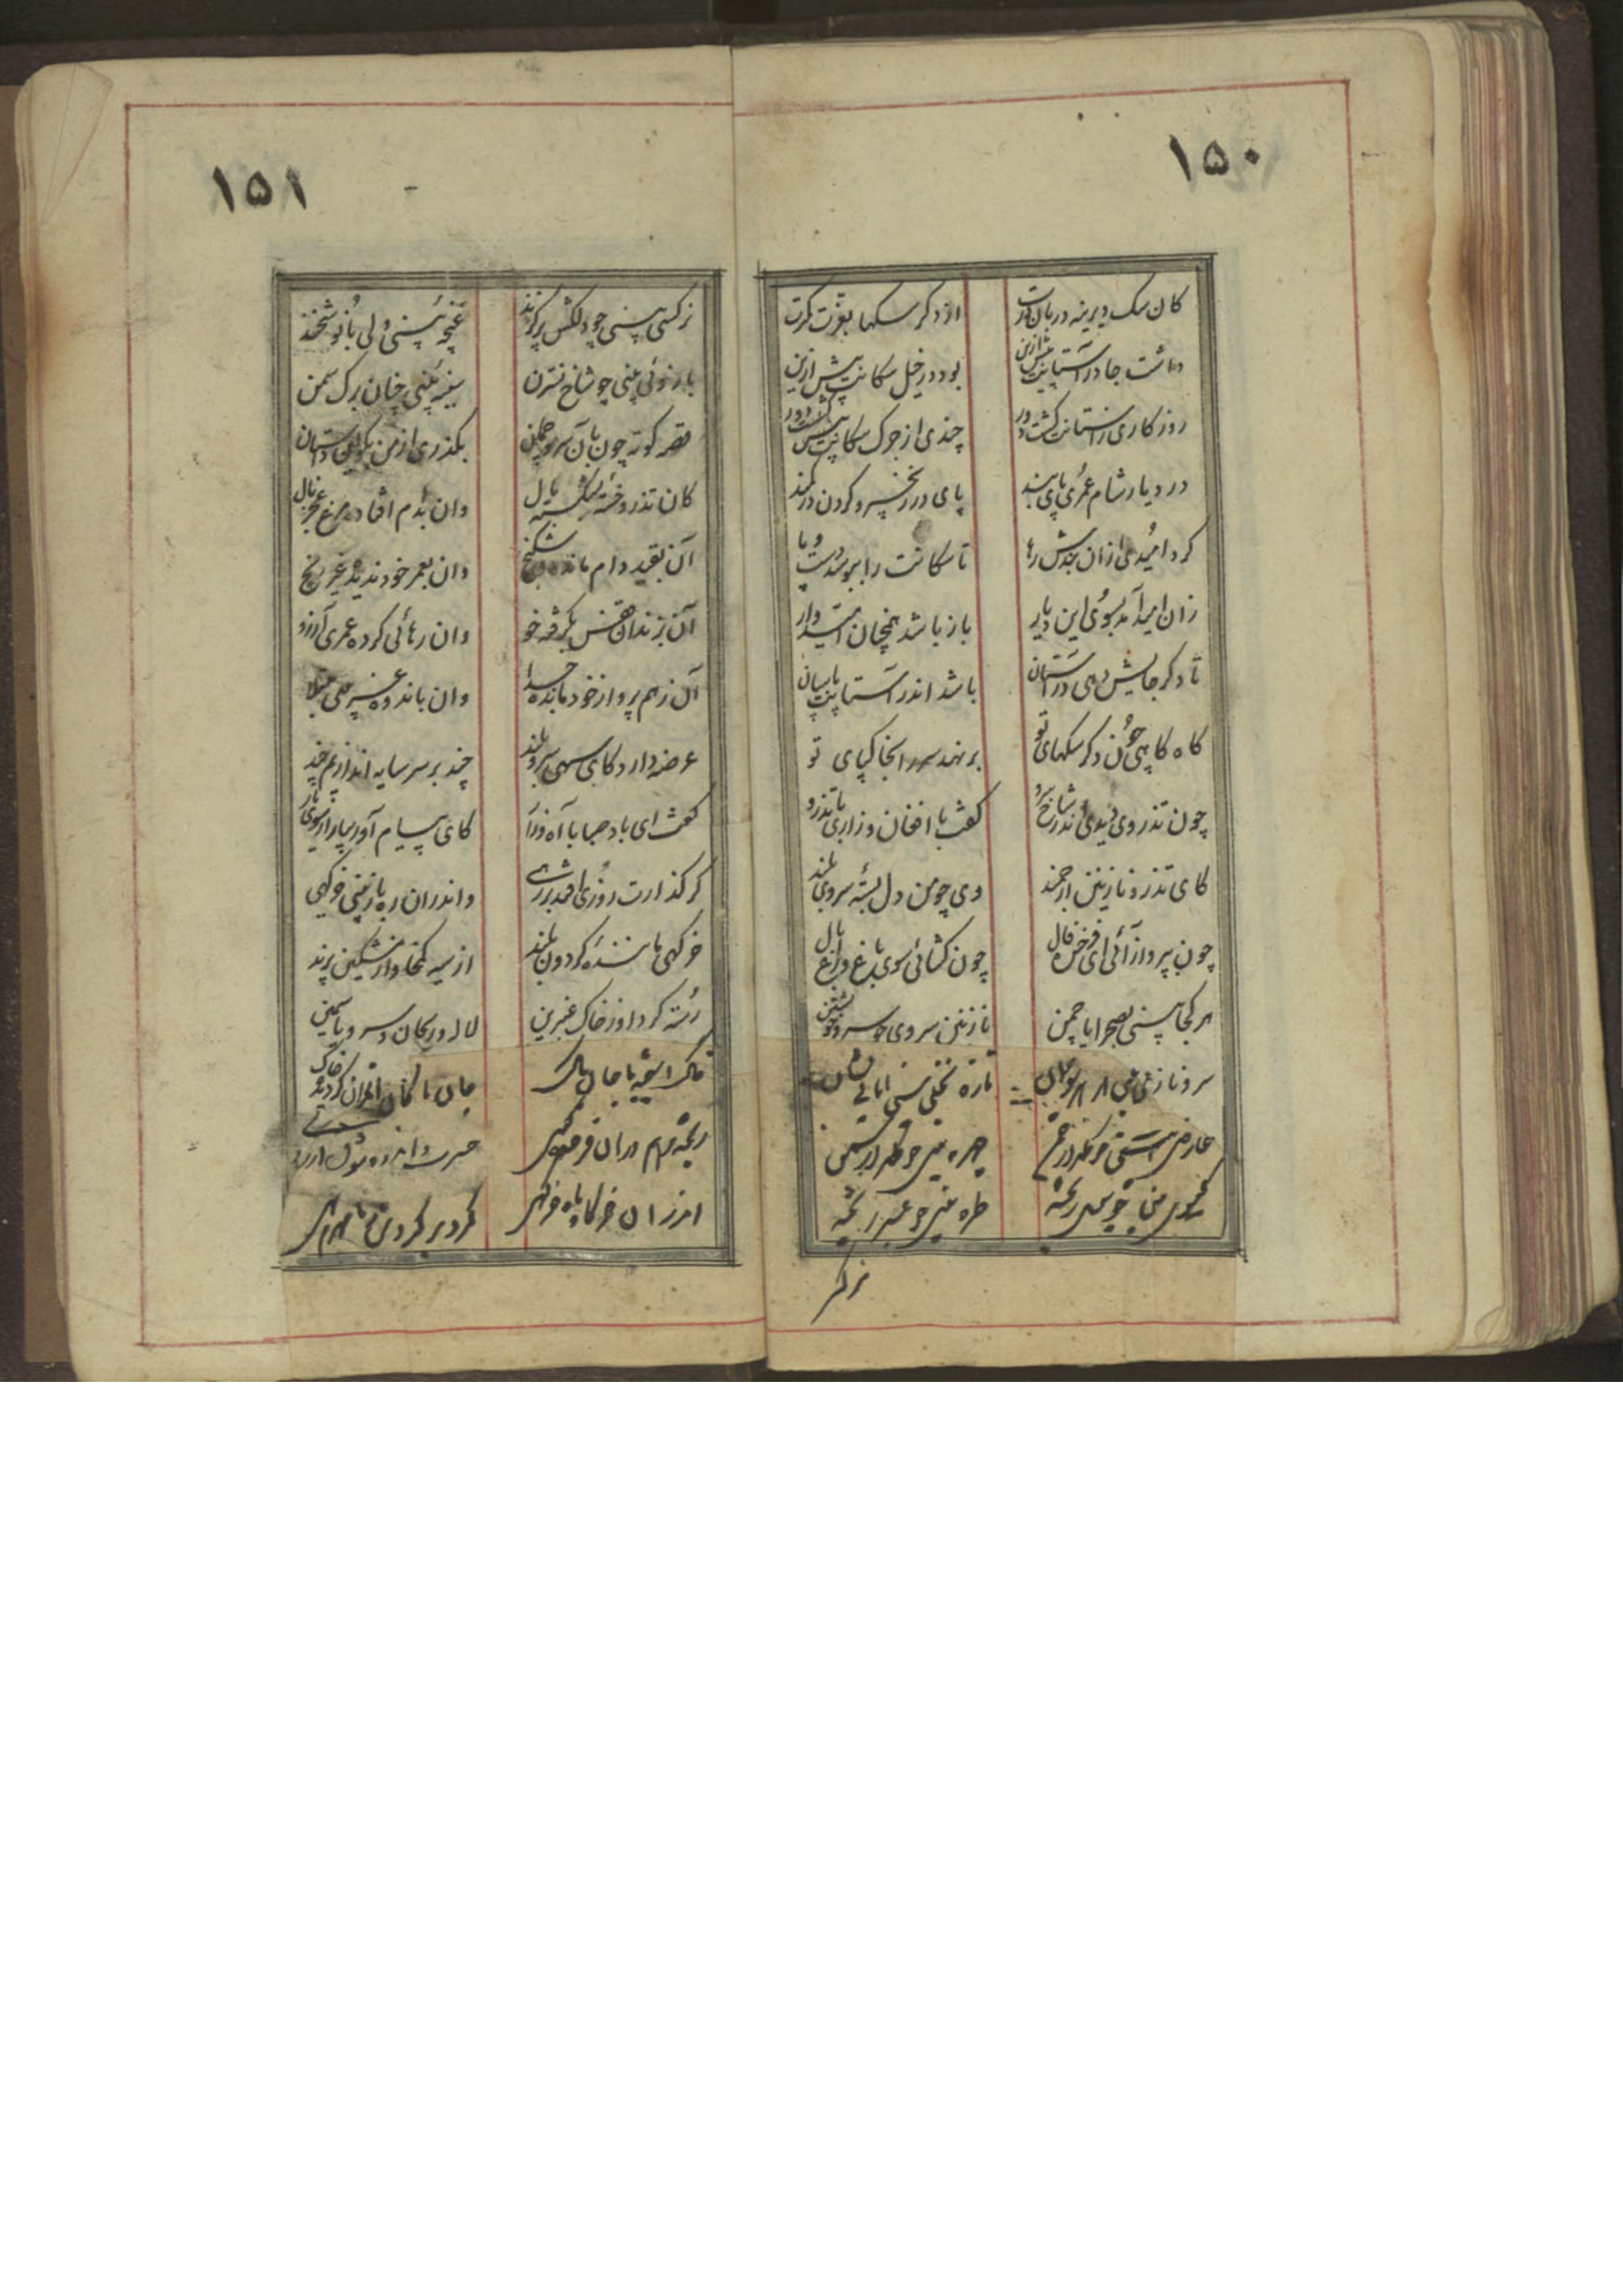 ۱۵۰
کان سک دیرینه دربان درت
از دکر سکها بعزت کرت
داشت جا در آستانت پیش ازین
بود در خیل سکانت پیش ازین
روزکاری ز آستانت کشت دور
چندی از جرک سکانت کشت دور
در دیار شام عمری پای بند
پای در زنجیر و کردن در کمند
کرد امیدی ازان بندش رها
تا سکانت را ببوسد دست و پا
زان امید آمد بسوی این دیار
باز باشد همچنان امیدوار
تا دکر جایش دهی در آستان
باشد اندر آستانت پاسبان
کاه کاهی چون دکر سکهای تو
بر نهد سر را بخاکپای تو
چون تذروی دیدی اندر شاخ سرو
کفت با افغان و زاری با تذرو
کای تذرو نازنین ارجمند
وی چو من دل بسته سروی بلند
چون بپرواز آئی ای فرخنده فال
چون کشائی سوی باغ و راغ بال
هر کجا بینی بصحرا یا چمن
نازنین سروی چو سرو خویشتن
سرو نازی بینی اما
تازه نخلی بینی اما بی نشان
عارضی بینی چو
چهره بینی چو
کیسوی بینی چو ریخته
طره بینی چو عنبر ریخته
نرکس
۱۵۱
نرکسی بینی چو دلکش پر کزند
غنچه بینی ولی با نوشخند
بازوئی بینی چو شاخ نسترن
سینه بینی چنان برک سمن
قصه کوته چون بآن سرو چمان
بکذری از من بکو این داستان
کان تذرو خسته بشکسته بال
وان بدام افتاده مرغ عجز نال
آن بقید دام مانده در شکنج
وان بعمر خود ندیده غیر رنج
آن بزندان قفس بکرفته خو
وان رهائی کرده عمری آرزو
آن ز هم پرواز خود مانده جدا
وان باندوه عبث مبتلا
عرضه دارد کای سهی سرو بلند
چند بر سر سایه اندازیم چند
کفت ای باد صبا با آه و زار
کای پیام آور بیار از سوی یار
کر کذارت روزی افتد بر رهی
و اندران ره باز بینی خرکهی
خرکهی ماننده کردون بلند
از سیه کمخا و از مشکین پرند
رسته کرد او ز خاک عنبرین
لاله و ریحان و سرو و یاسمین
خاک با جان پاک
جان پاکان اندران کردیده خاک
ریخته دران
حسرت و اندوه
اندران خرکاه ماه خرکهی
کرد بر کردش